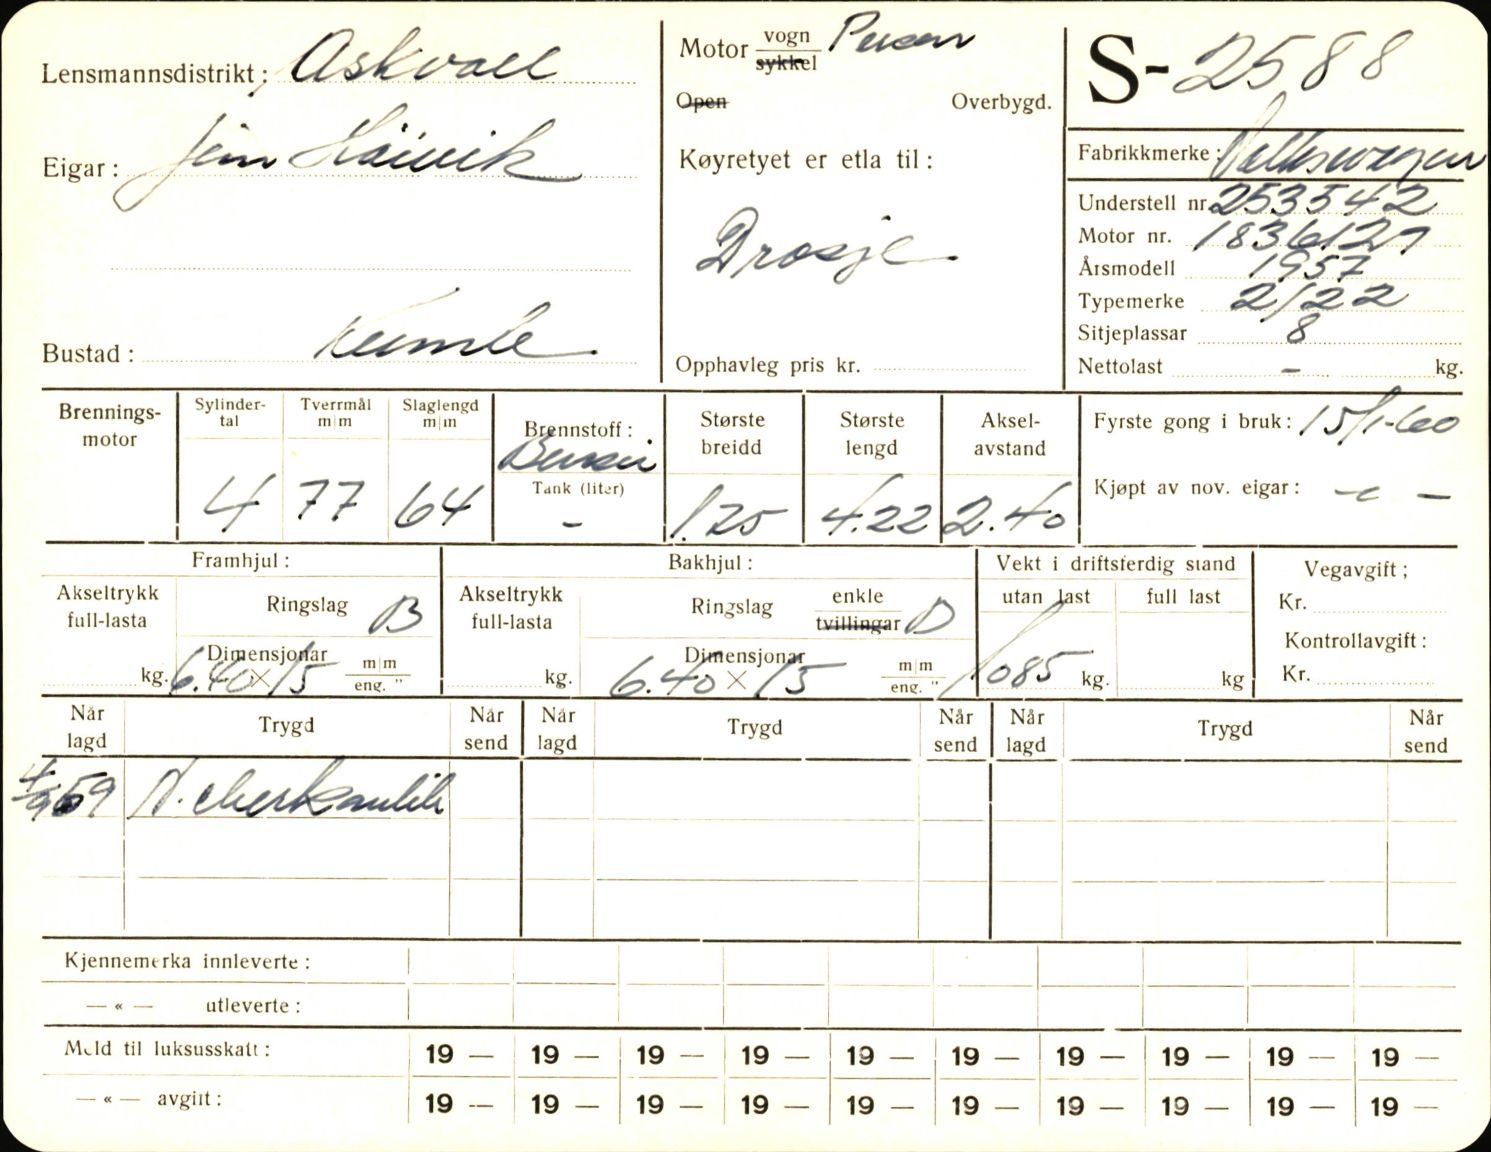 Lensmannsdistrikt: Askvoll
Eigar: Høivik
Bustad:
Motor vogn Person
sykkel
Open Overbygd.
Køyretyet er etla til:
Drosje
Opphavleg pris kr.
S-2588
Fabrikkmerke: Volkswagen
Understell nr. 253542
Motor nr. 1836127
Årsmodell 1957
Typemerke 2/22
Sitjeplassar 8
Nettolast - kg.
Brennings-
motor
Sylinder-
tal
4
Tverrmål
m|m
77
Slaglengd
m|m
64
Brennstoff:
Bensin
Tank (liter)
-
Største
breidd
1.75
Største
lengd
4.22
Aksel-
avstand
2.40
Fyrste gong i bruk: 15/1-60
Kjøpt av nov. eigar: - " -
Framhjul:
Akseltrykk
full-lasta
kg.
Ringslag B
Dimensjonar
6.40 × 15 m|m
eng. "
Bakhjul:
Akseltrykk
full-lasta
kg.
Ringslag enkle
tvillingar B
Dimensjonar
6.40 × 15 m|m
eng. "
Vekt i driftsferdig stand
utan last
1085 kg.
full last
kg
Vegavgift;
Kr.
Kontrollavgift:
Kr.
Når
lagd
Trygd
Når
send
Når
lagd
Trygd
Når
send
Når
lagd
Trygd
Når
send
4/9 59
Kjennemerka innleverte:
— « — utleverte:
Meld til luksusskatt: 19 — 19 — 19 — 19 — 19 — 19 — 19 — 19 — 19 — 19 —
— « — avgift: 19 — 19 — 19 — 19 — 19 — 19 — 19 — 19 — 19 — 19 —